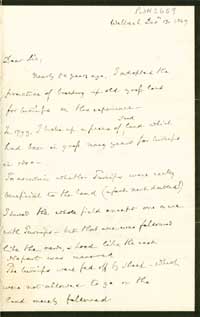 Dear Sir,
Nearly 50 years ago, I adopted the
practice of breaking up old grass land
for turnips on this experience -
In 1799, I broke up a piece of land which
had been in grass many years for turnips
in 1800 -
To ascertain whether Turnips were really
beneficial to the land (a fact not doubted)
I sowed the whole field except one acre
with Turnips - but that one was followed
like the rest, & hoed like the rest
The turnips were fed off by sheep - which
were not allowed to go on the
land merely fallowed